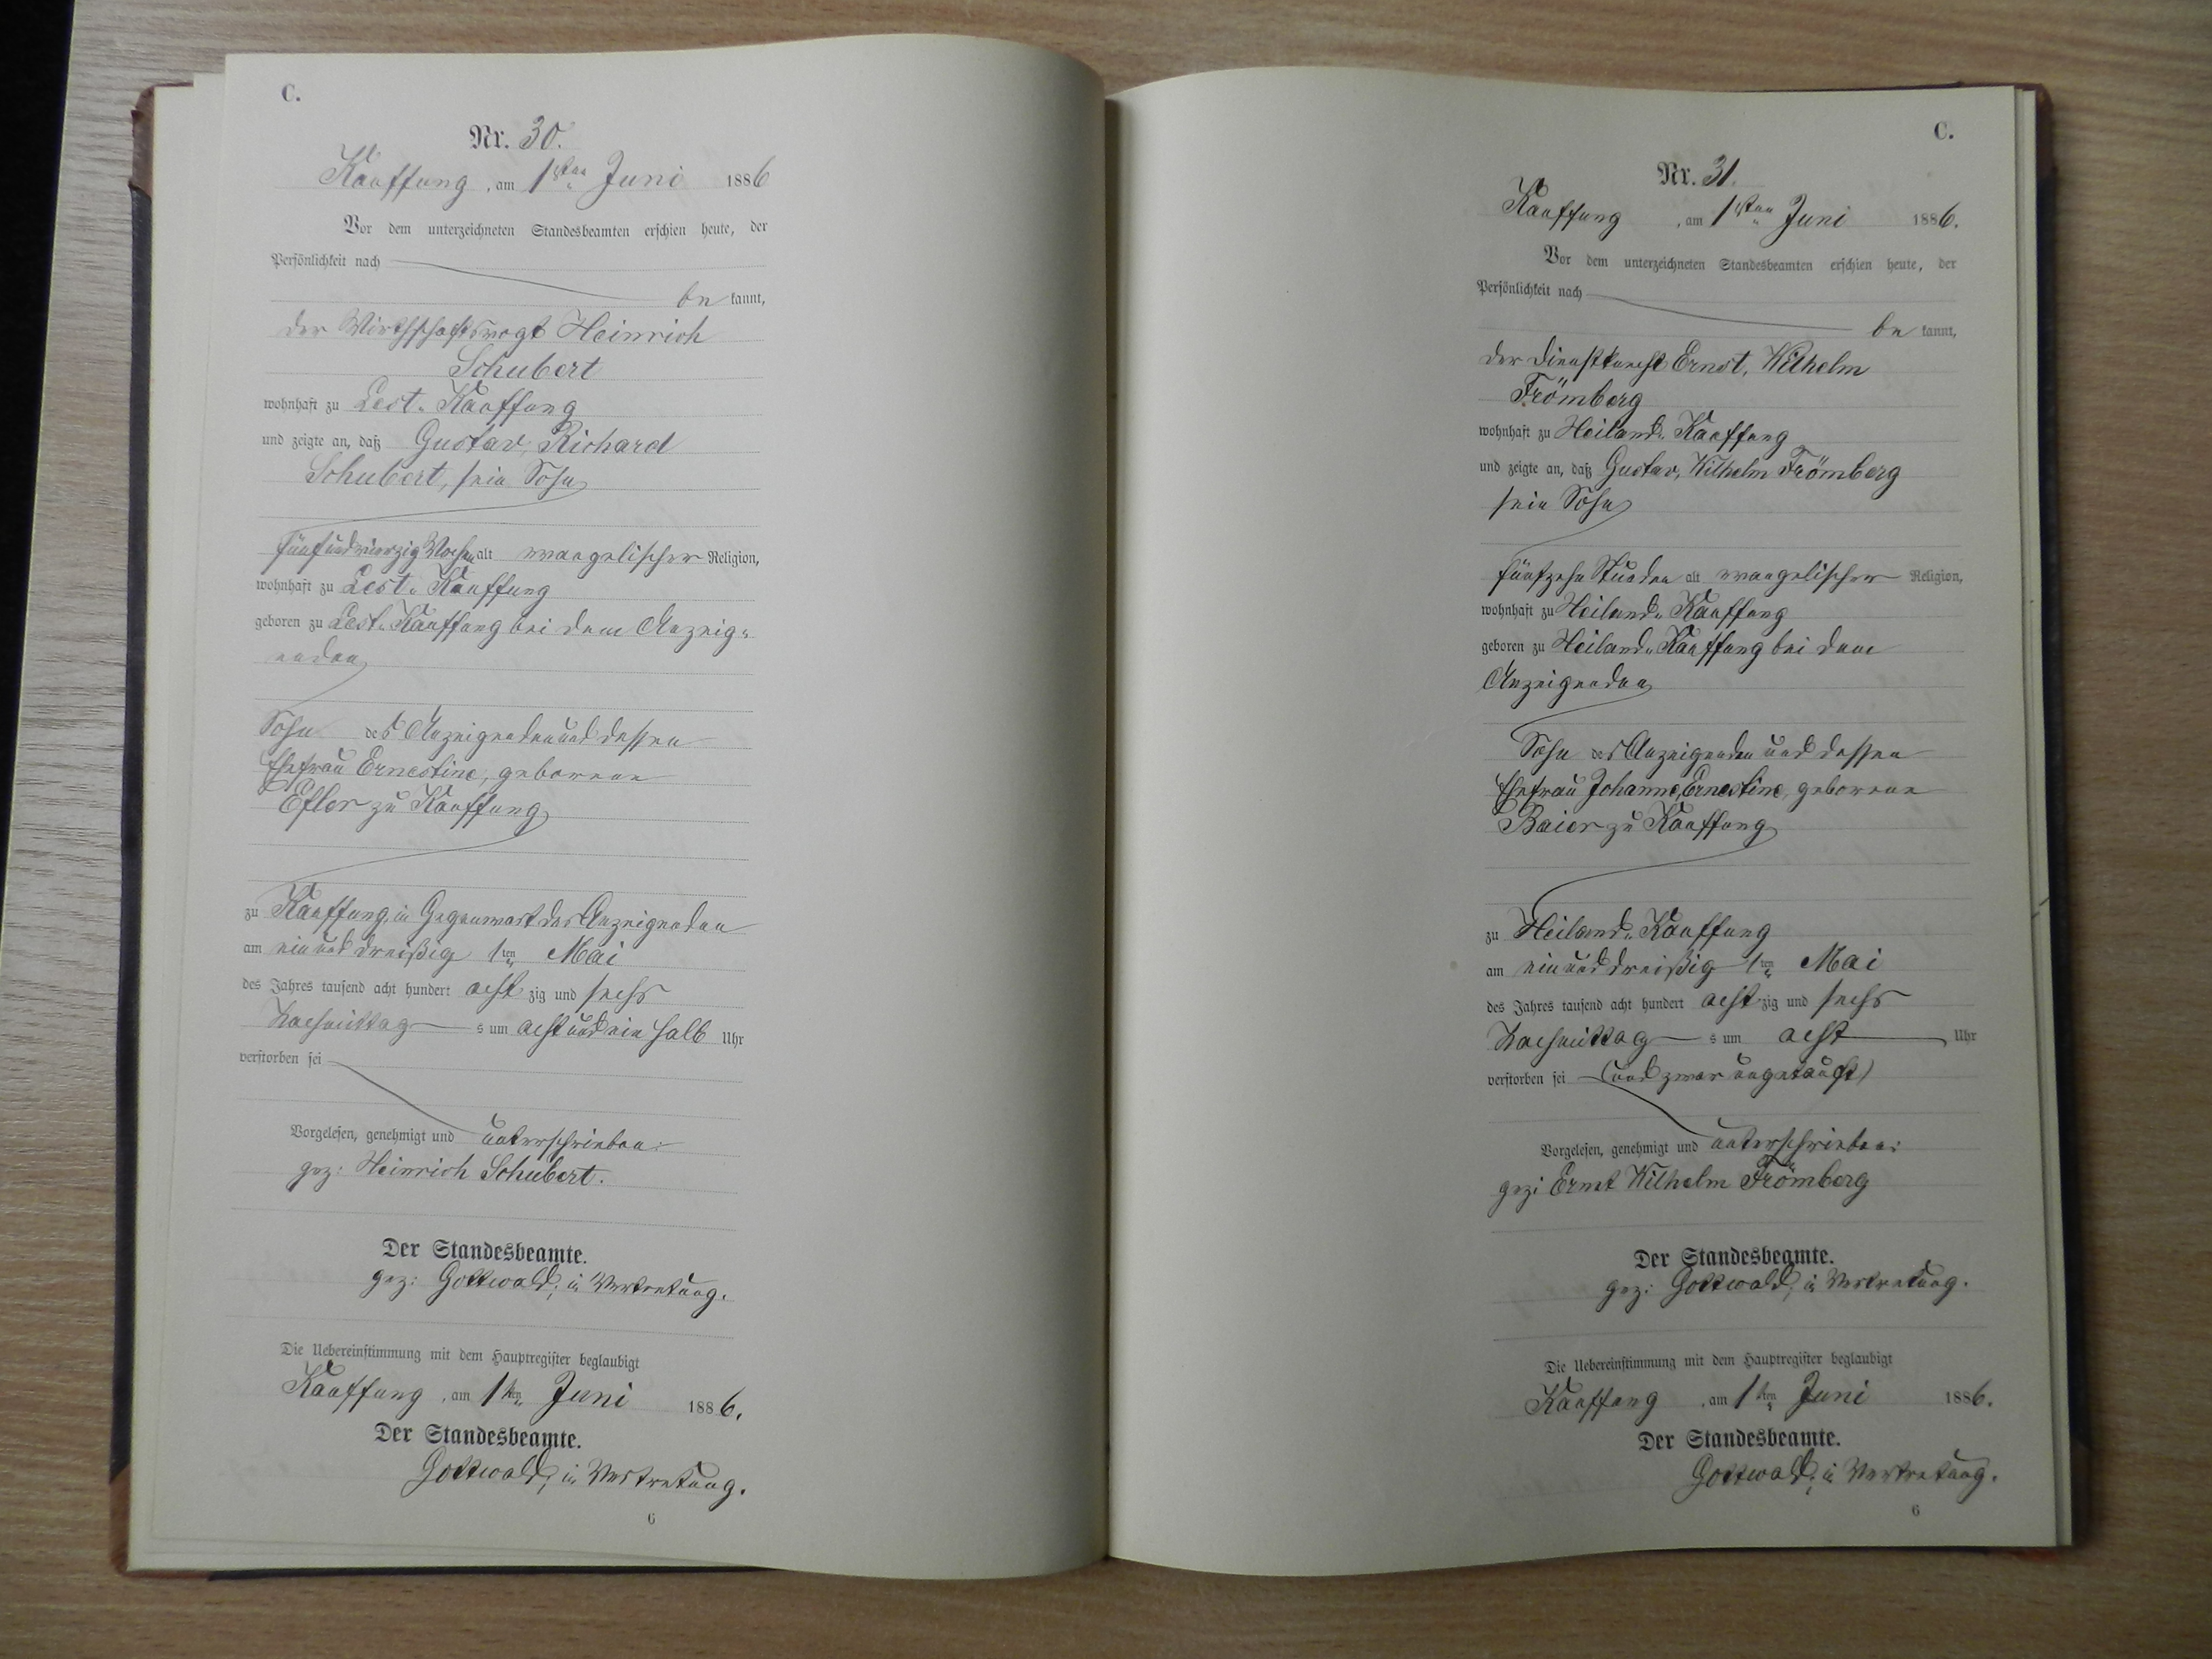 C.
Nr. 30.
Kauffung, am 1sten Juni 1886
Vor dem unterzeichneten Standesbeamten erschien heute, der
Persönlichkeit nach
bekannt,
der Wirthschaftsvogt Heinrich
Schubert
wohnhaft zu Lest-Kauffung
und zeigte an, daß Gustav, Richard
Schubert, sein Sohn
fünfundvierzig Wochen alt evangelischer Religion,
wohnhaft zu Lest-Kauffung
geboren zu Lest-Kauffung bei dem Anzeig-
enden
Sohn des Anzeigenden und dessen
Ehefrau Ernestine, geborene
zu Kauffung
zu Kauffung in Gegenwart des Anzeigenden
am ein und dreißig ten Mai
des Jahres tausend acht hundert achtzig und sechs
Nachmittags um acht und ein halb Uhr
verstorben sei
Vorgelesen, genehmigt und unterschrieben:
gez: Heinrich Schubert.
Der Standesbeamte.
gez: Gottwald, in Vertretung.
Die Uebereinstimmung mit dem Hauptregister beglaubigt
Kauffung, am 1ten Juni 1886.
Der Standesbeamte.
Gottwald, in Vertretung.
6
C.
Nr. 31.
Kauffung, am 1sten Juni 1886.
Vor dem unterzeichneten Standesbeamten erschien heute, der
Persönlichkeit nach
bekannt,
der Dienstknecht Ernst, Wilhelm
Frömberg
wohnhaft zu Heiland-Kauffung
und zeigte an, daß Gustav, Wilhelm Frömberg
sein Sohn
fünfzehn Stunden alt evangelischer Religion,
wohnhaft zu Heiland-Kauffung
geboren zu Heiland-Kauffung bei dem
Anzeigenden
Sohn des Anzeigenden und dessen
Ehefrau Johanne, Ernestine, geborene
Baier zu Kauffung
zu Heiland-Kauffung
am ein und dreißig ten Mai
des Jahres tausend acht hundert achtzig und sechs
Nachmittags um acht Uhr
verstorben sei (und zwar ungetauft)
Vorgelesen, genehmigt und unterschrieben:
gez: Ernst Wilhelm Frömberg
Der Standesbeamte.
gez: Gottwald, in Vertretung.
Die Uebereinstimmung mit dem Hauptregister beglaubigt
Kauffung, am 1ten Juni 1886.
Der Standesbeamte.
Gottwald, in Vertretung.
6